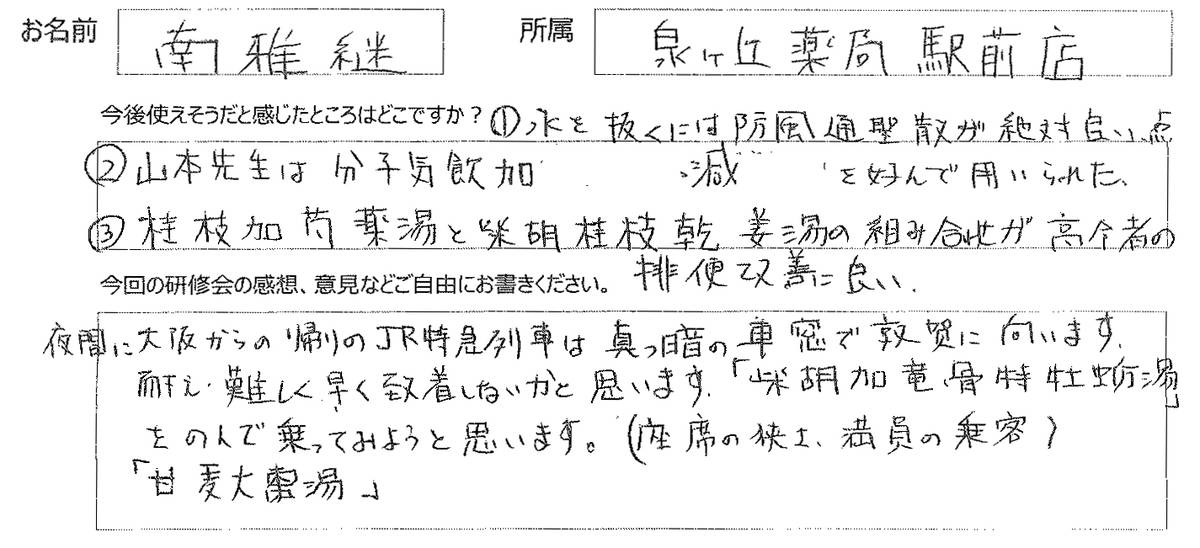 お名前 南雅継 所属 泉ヶ丘薬局駅前店
今後使えそうだと感じたところはどこですか？ ①水を抜くには防風通聖散が絶対良い点
②山本先生は分子気飲加減を好んで用いられた、
③桂枝加芍薬湯と柴胡桂枝乾姜湯の組み合せが高令者の
排便改善に良い．
今回の研修会の感想、意見などご自由にお書きください。
夜間に大阪からの帰りのJR特急列車は真っ暗の車窓で敦賀に向います．
耐え難しく早く致着しないかと思います．「柴胡加竜骨特牡蛎湯」
をのんで乗ってみようと思います。（座席の狭さ、満員の乗客）
「甘麦大棗湯」